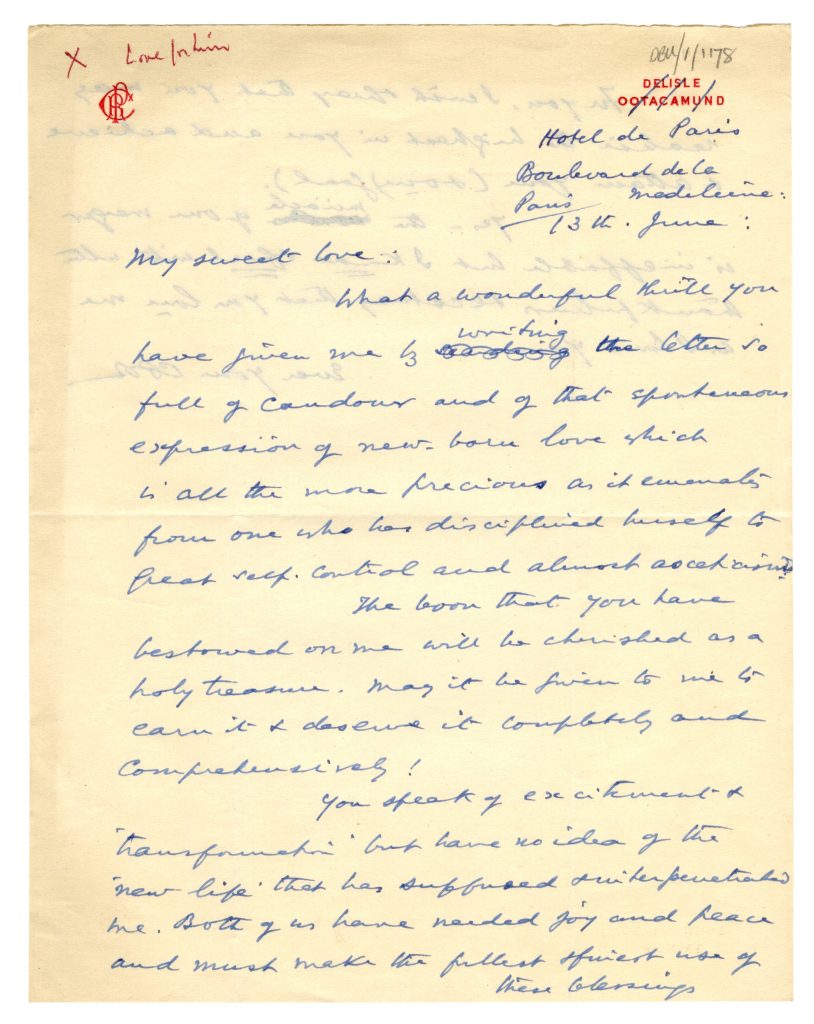 X Love for him
DBW/1/1178
CPR
DELISLE
OOTACAMUND
Hotel de Paris
Boulevard de la
Madeleine:
Paris
13th. June:
My sweet love:
What a wonderful thrill you
writing
have given me by the letter so
full of candour and of that spontaneous
expression of new-born love which
is all the more precious as it emanates
from one who has disciplined herself to
great self-control and almost asceticism.
The boon that you have
bestowed on me will be cherished as a
holy treasure. May it be given to me to
earn it & deserve it completely and
comprehensively!
You speak of excitement &
'transformation' but have no idea of the
'new life' that has suffused & interpenetrated
me. Both of us have needed joy and peace
and must make the fullest & finest use of
these blessings